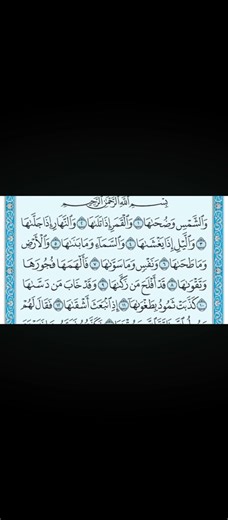 بِسْمِ اللَّهِ الرَّحْمَٰنِ الرَّحِيمِ
وَالشَّمْسِ وَضُحَىٰهَا ١ وَالْقَمَرِ إِذَا تَلَىٰهَا ٢ وَالنَّهَارِ إِذَا جَلَّىٰهَا
٣ وَاللَّيْلِ إِذَا يَغْشَىٰهَا ٤ وَالسَّمَاءِ وَمَا بَنَىٰهَا ٥ وَالْأَرْضِ
وَمَا طَحَىٰهَا ٦ وَنَفْسٍ وَمَا سَوَّىٰهَا ٧ فَأَلْهَمَهَا فُجُورَهَا
وَتَقْوَىٰهَا ٨ قَدْ أَفْلَحَ مَن زَكَّىٰهَا ٩ وَقَدْ خَابَ مَن دَسَّىٰهَا
١٠ كَذَّبَتْ ثَمُودُ بِطَغْوَىٰهَا ١١ إِذِ انبَعَثَ أَشْقَىٰهَا ١٢ فَقَالَ لَهُمْ